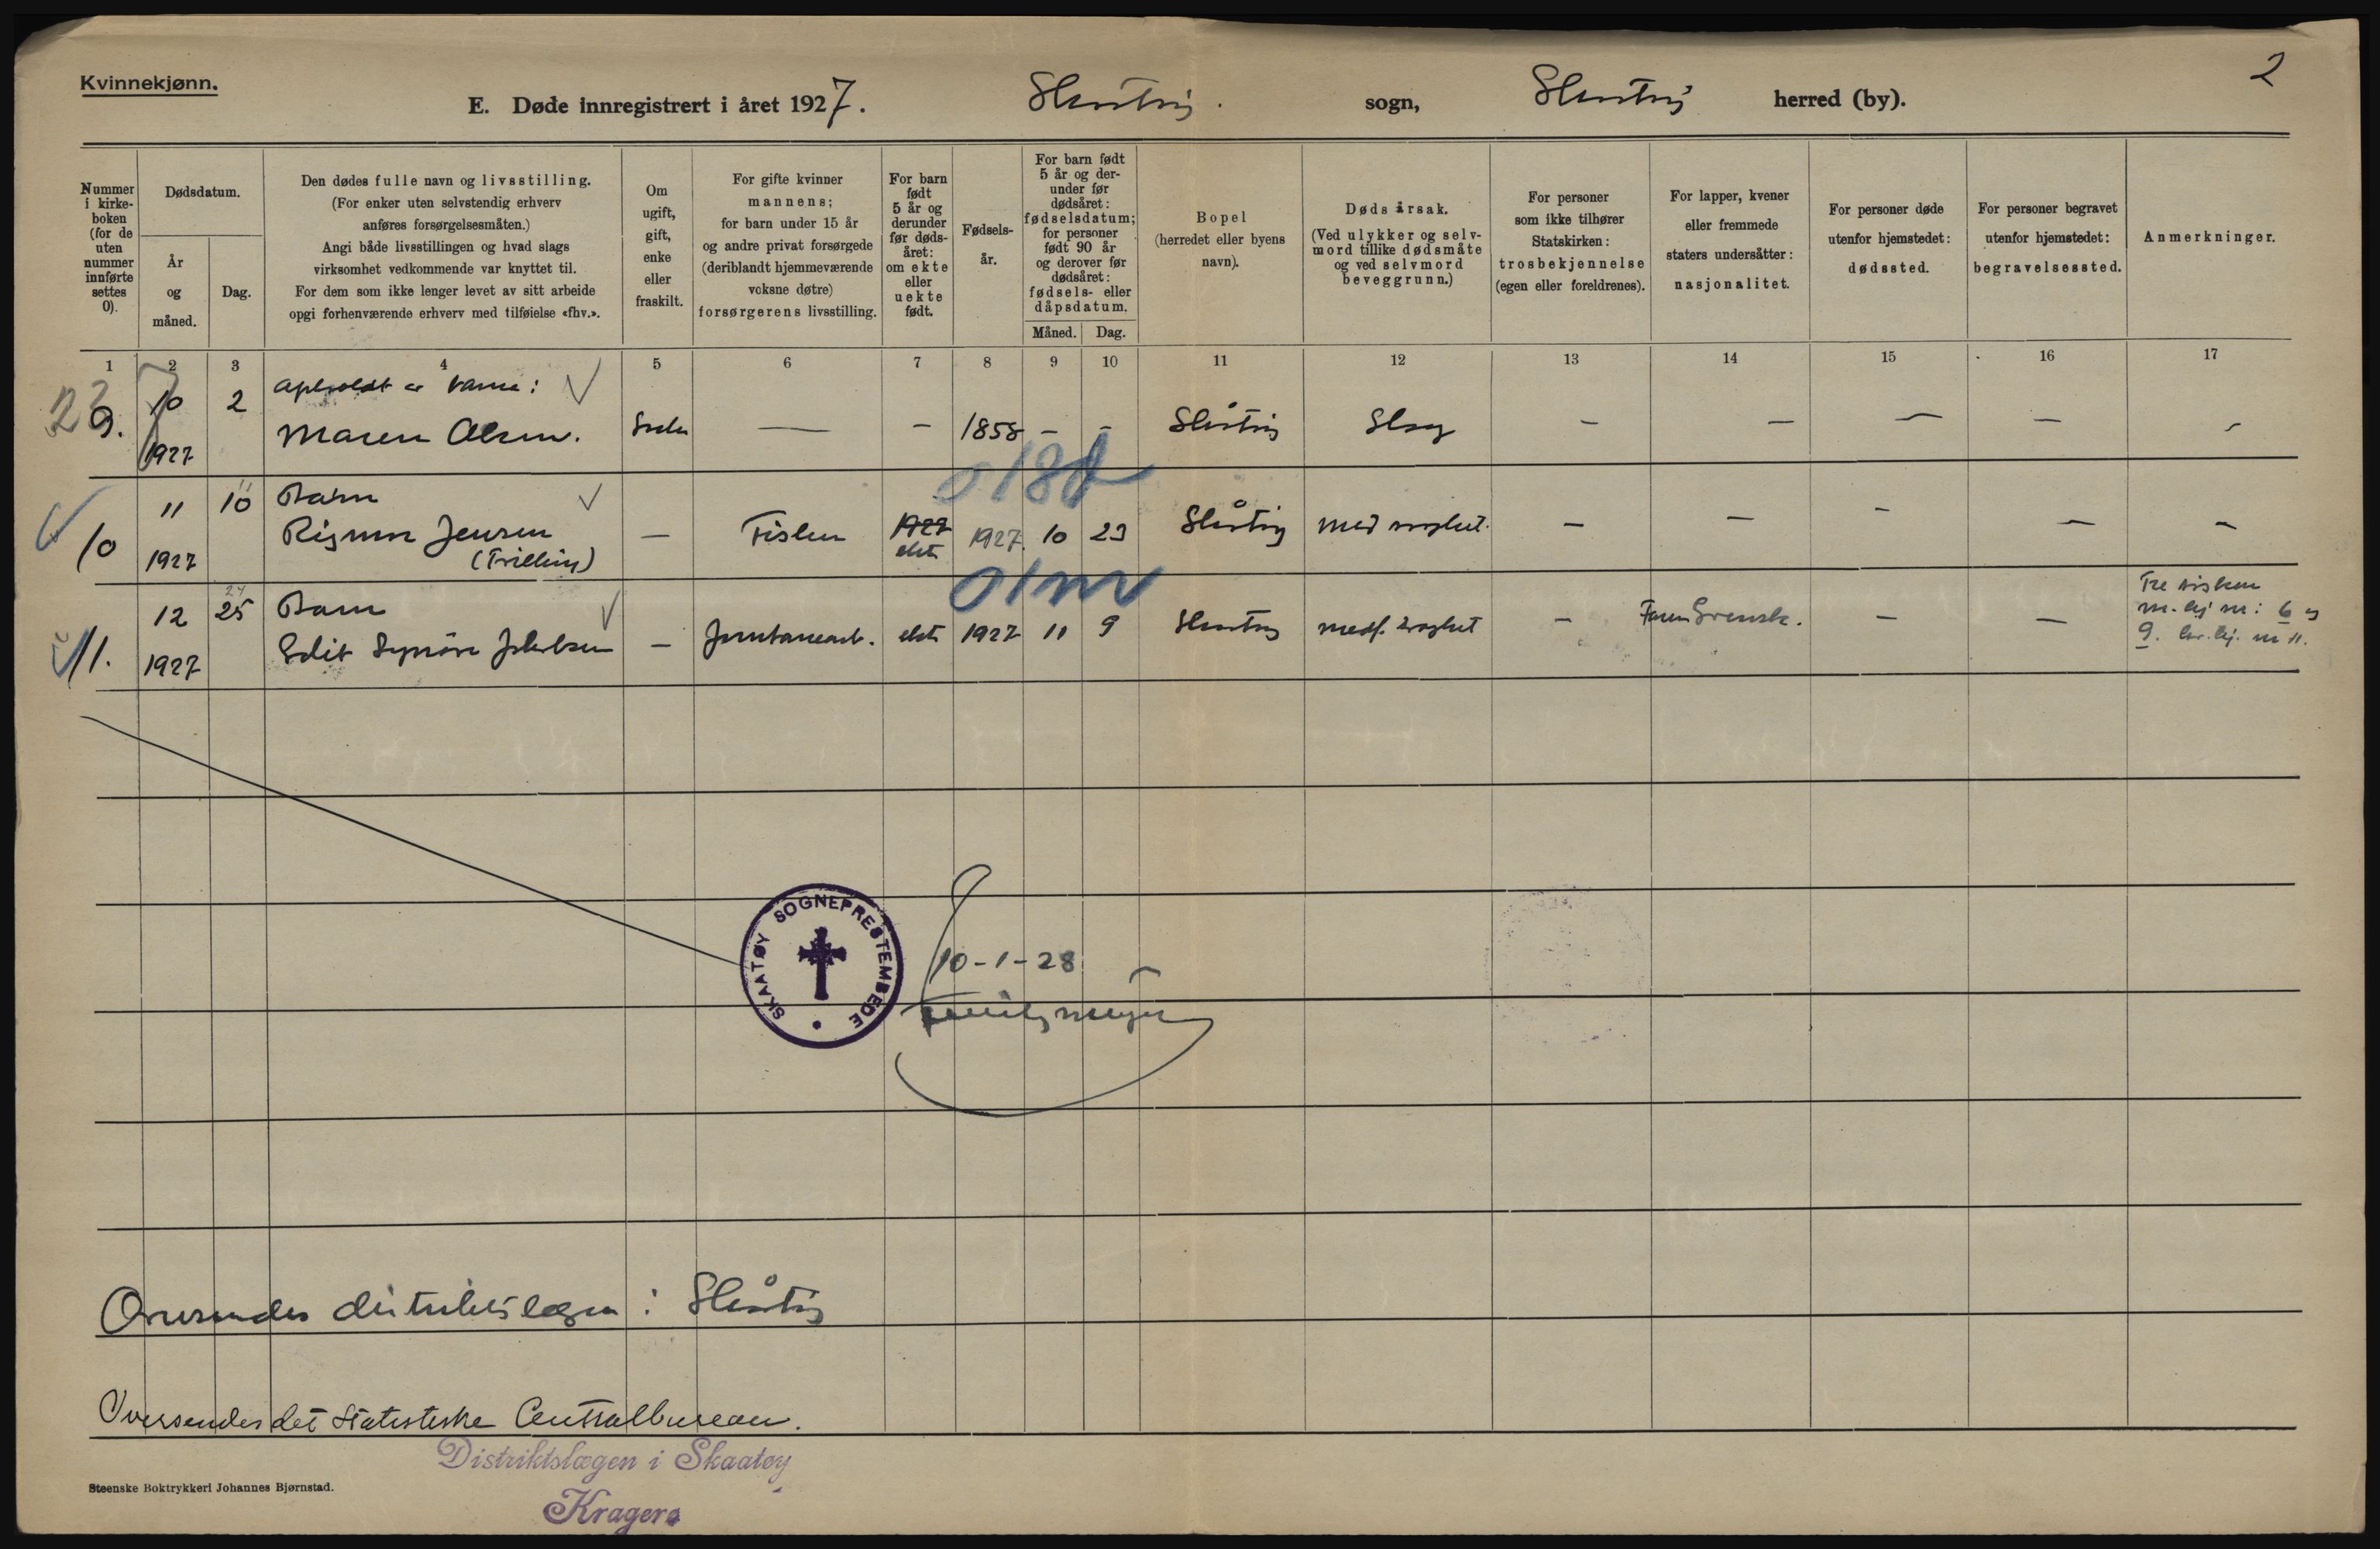 Kvinnekjønn.
2
E. Døde innregistrert i året 1927. Skåtøy. sogn, Skåtøy herred (by).
Nummer i kirkeboken (for de uten nummer innførte settes 0).
Dødsdatum.
År og måned.
Dag.
Den dødes fulle navn og livsstilling.
(For enker uten selvstendig erhverv
anføres forsørgelsesmåten.)
Angi både livsstillingen og hvad slags
virksomhet vedkommende var knyttet til.
For dem som ikke lenger levet av sitt arbeide
opgi forhenværende erhverv med tilføielse «fhv.».
Om ugift, gift, enke eller fraskilt.
For gifte kvinner
mannens;
for barn under 15 år
og andre privat forsørgede
(deriblandt hjemmeværende
voksne døtre)
forsørgerens livsstilling.
For barn født 5 år og derunder før dødsåret: om ekte eller uekte født.
Fødselsår.
For barn født
5 år og derunder før
dødsåret:
fødselsdatum;
for personer
født 90 år
og derover før
dødsåret:
fødsels- eller
dåpsdatum.
Måned. Dag.
Bopel
(herredet eller byens
navn).
Dødsårsak.
(Ved ulykker og selvmord tillike dødsmåte
og ved selvmord
beveggrunn.)
For personer
som ikke tilhører
Statskirken:
trosbekjennelse
(egen eller foreldrenes).
For lapper, kvener
eller fremmede
staters undersåtter:
nasjonalitet.
For personer døde
utenfor hjemstedet:
dødssted.
For personer begravet
utenfor hjemstedet:
begravelsessted.
Anmerkninger.
1 2 3 4 5 6 7 8 9 10 11 12 13 14 15 16 17
9. 10 1927 2
Maren Olsen. — — 1858 — — Skåtøy Slag — — — — —
10 11 1927 10 Barn
Rigmor Jensen
(Trilling) — Fisker 1927 ekte 1927. 10 23 Skåtøy Med svaghet. — — — — —
11. 12 1927 25 24 Barn
Edit Synøve Jakobsen — Jernbanearb. ekte 1927 11 9 Skåtøy medf. svaghet — Faren Svensk. — —
6 og
9.
SKAATØY SOGNEPRESTEMBEDE
10-1-28
Oversendes distriktslægen i Skåtøy
Oversendes det Statistiske Centralbureau.
Distriktslægen i Skaatøy
Kragerø
Steenske Boktrykkeri Johannes Bjørnstad.